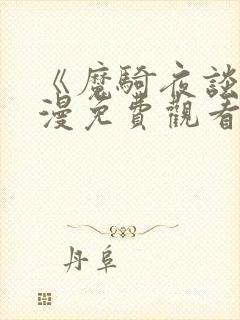 《魔騎夜談
漫免費觀看
丹阜